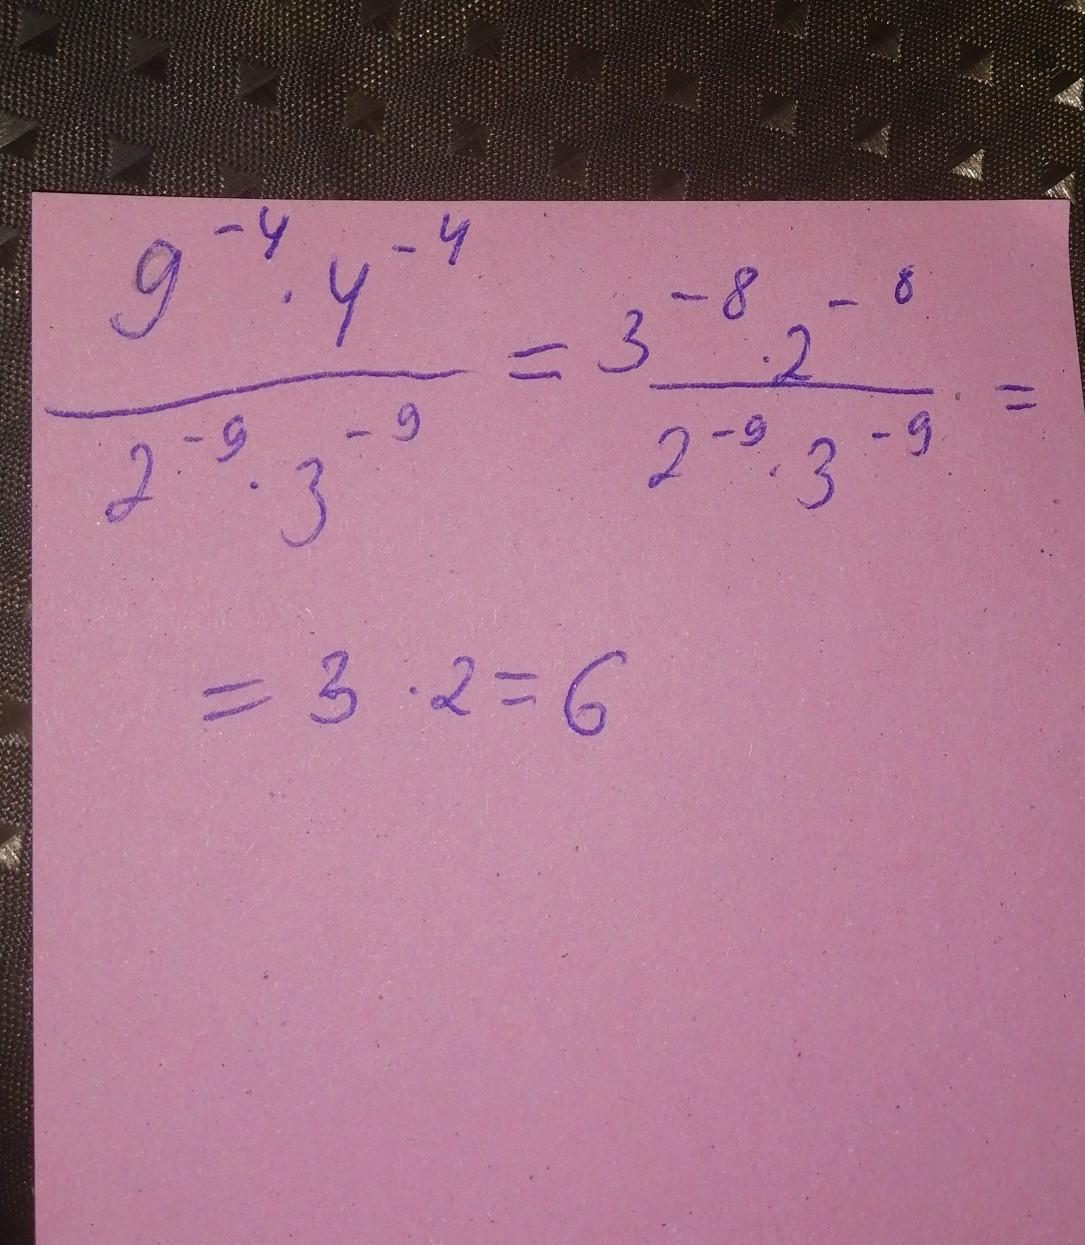 9⁻⁴ · 4⁻⁴ / 2⁻⁹ · 3⁻⁹ = 3⁻⁸ · 2⁻⁸ / 2⁻⁹ · 3⁻⁹ =
= 3 · 2 = 6